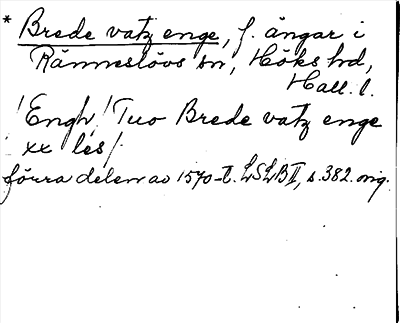 * Brede vatz enge, f. ängar i
Ränneslövs sn, Höks hd,
Hall. l.
/Engh/ Tuo Brede vatz enge
xx les/.
förra delen av 1570-t. LSLB II, s. 382. orig.